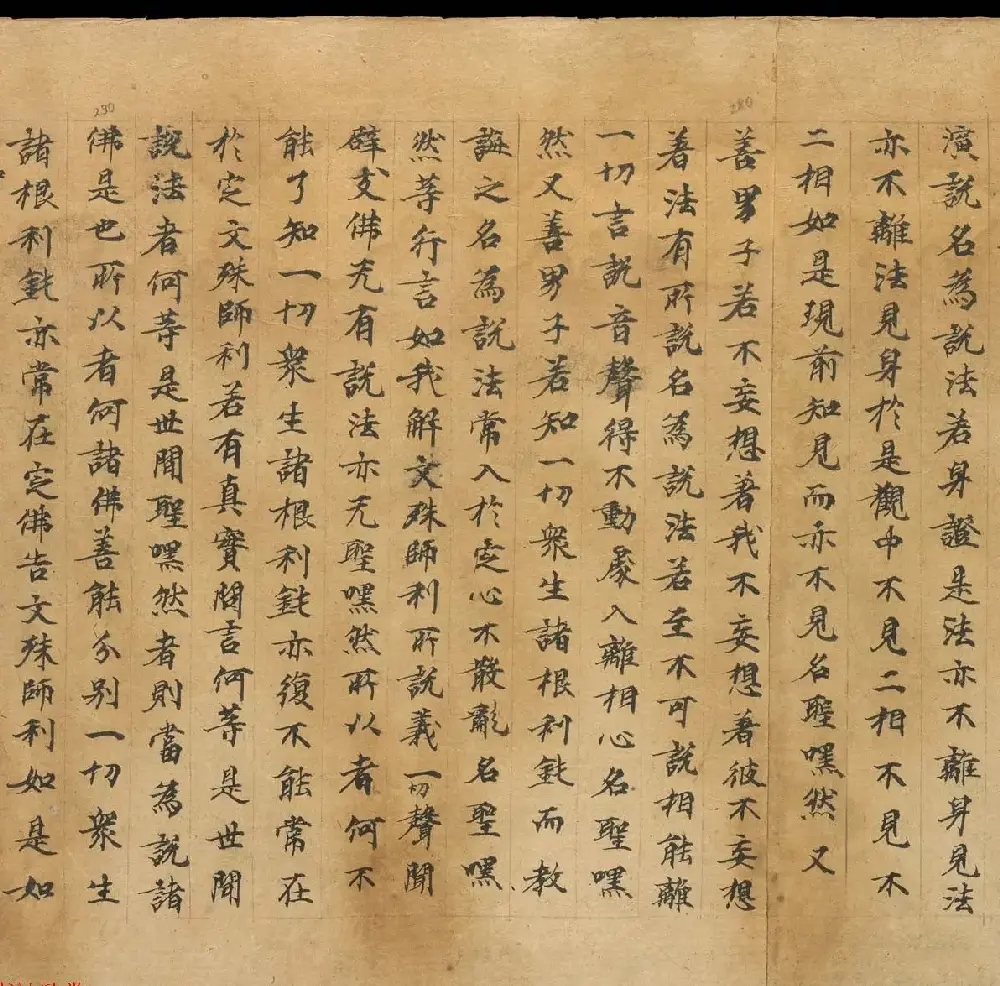 演説名為説法若身證是法亦不離身見法
亦不離法見身於是觀中不見二相不見不
二相如是現前知見而亦不見名聖嘿然又
善男子若不妄想著我不妄想著彼不妄想
著法有所説名為説法若至不可説相能離
一切言説音聲得不動處入離相心名聖嘿
然又善男子若知一切衆生諸根利鈍而教
誨之名為説法常入於定心不散亂名聖嘿
然等行言如我解文殊師利所説義一切聲聞
辟支佛无有説法亦无聖嘿然所以者何不
能了知一切衆生諸根利鈍亦復不能常在
於定文殊師利若有真實問言何等是世間
説法者何等是世間聖嘿然者則當為説諸
佛是也所以者何諸佛善能分別一切衆生
諸根利鈍亦常在定佛告文殊師利如是如
280
290